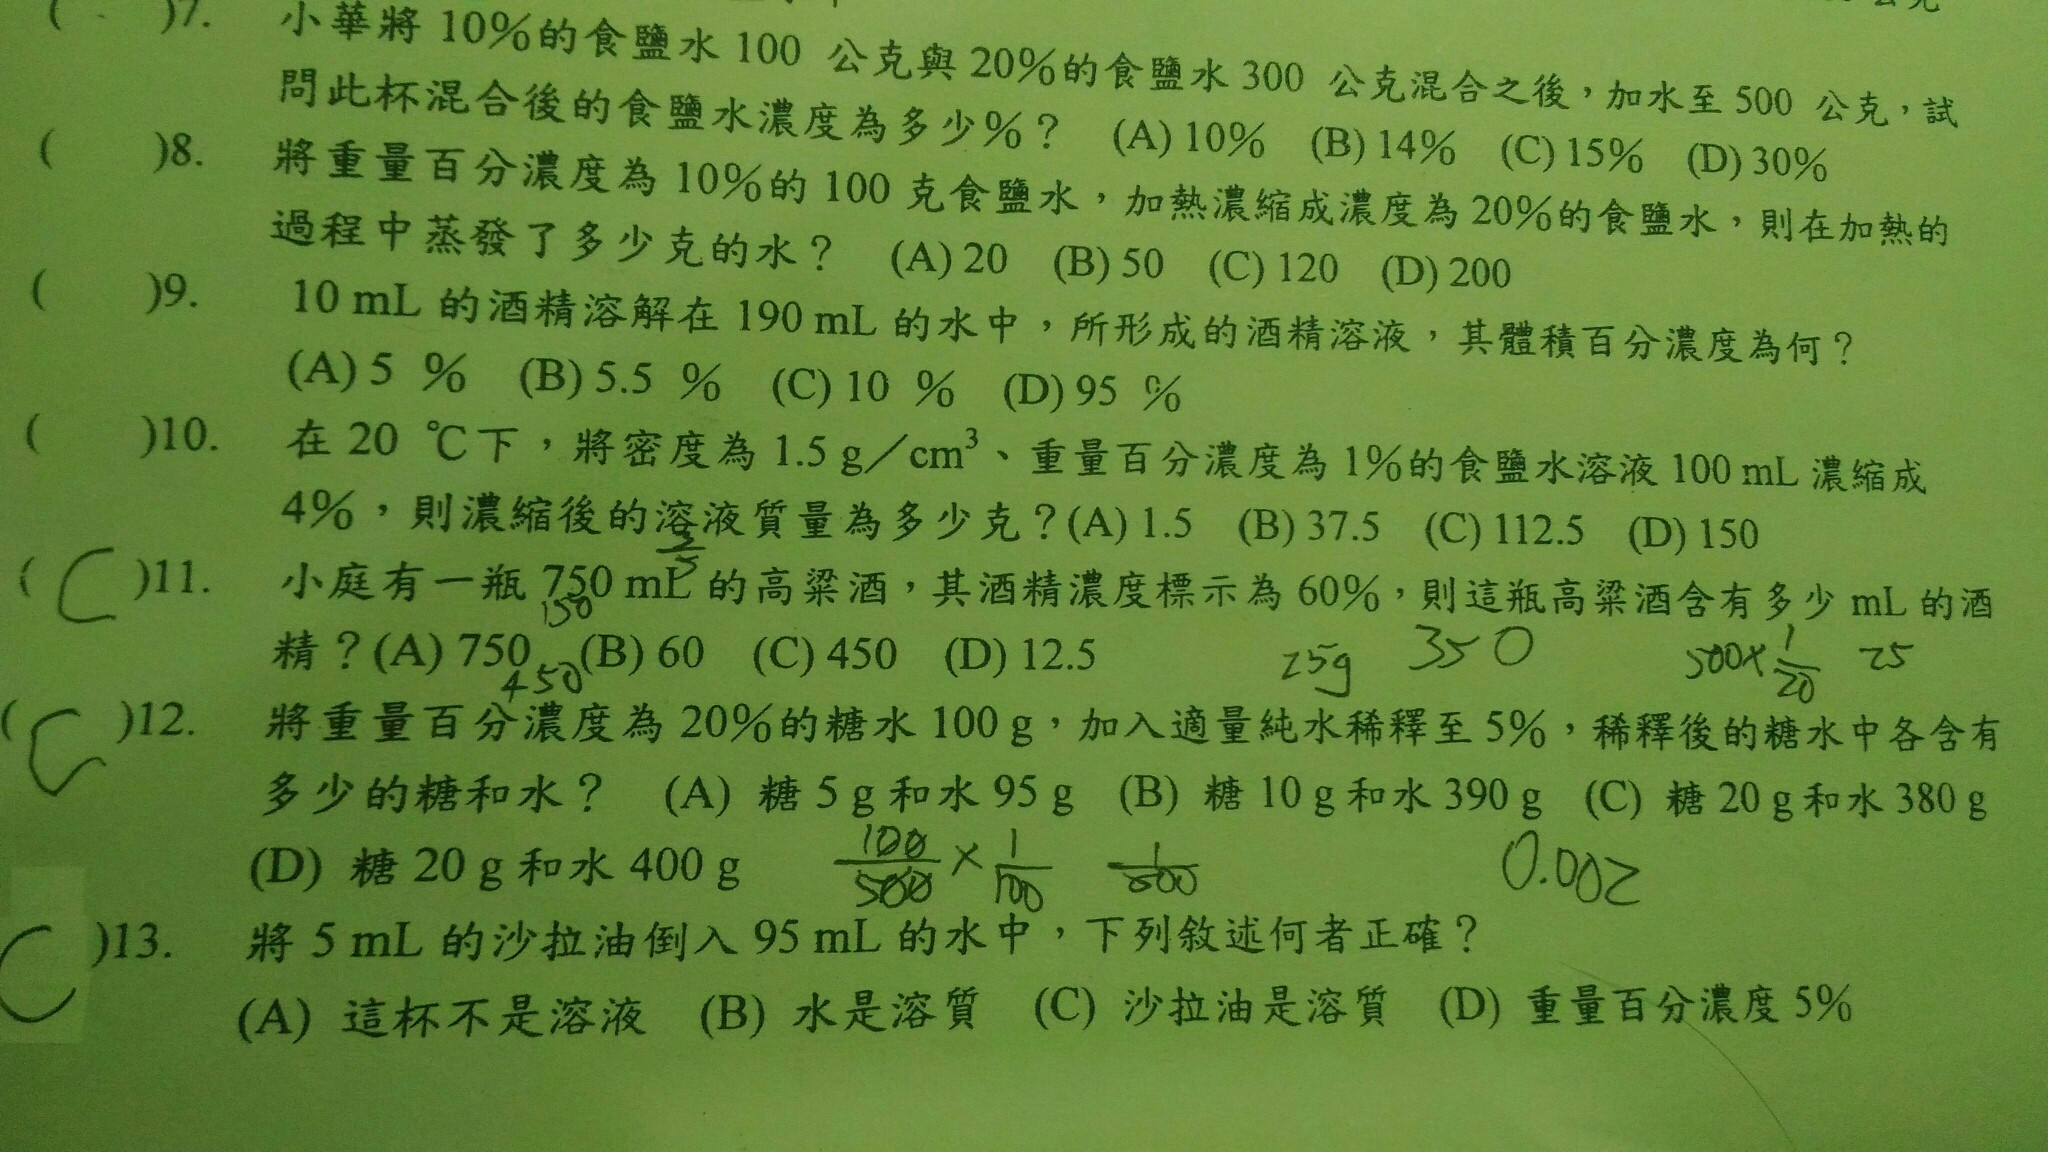 公克
( )7. 小華將 10%的食鹽水 100 公克與 20%的食鹽水 300 公克混合之後，加水至 500 公克，試
問此杯混合後的食鹽水濃度為多少%？ (A) 10% (B) 14% (C) 15% (D) 30%
( )8. 將重量百分濃度為 10%的 100 克食鹽水，加熱濃縮成濃度為 20%的食鹽水，則在加熱的
過程中蒸發了多少克的水？ (A) 20 (B) 50 (C) 120 (D) 200
( )9. 10 mL 的酒精溶解在 190 mL 的水中，所形成的酒精溶液，其體積百分濃度為何？
(A) 5 % (B) 5.5 % (C) 10 % (D) 95 %
( )10. 在 20 ℃下，將密度為 1.5 g／cm³、重量百分濃度為 1%的食鹽水溶液 100 mL 濃縮成
4%，則濃縮後的溶液質量為多少克？(A) 1.5 (B) 37.5 (C) 112.5 (D) 150
3/5
( C )11. 小庭有一瓶 750 mL 的高粱酒，其酒精濃度標示為 60%，則這瓶高粱酒含有多少 mL 的酒
150
精？(A) 750 (B) 60 (C) 450 (D) 12.5 25g 350 500× 1/20 25
450
( C )12. 將重量百分濃度為 20%的糖水 100 g，加入適量純水稀釋至 5%，稀釋後的糖水中各含有
多少的糖和水？ (A) 糖 5 g 和水 95 g (B) 糖 10 g 和水 390 g (C) 糖 20 g 和水 380 g
(D) 糖 20 g 和水 400 g 100/500 × 1/100 0.002
C )13. 將 5 mL 的沙拉油倒入 95 mL 的水中，下列敘述何者正確？
(A) 這杯不是溶液 (B) 水是溶質 (C) 沙拉油是溶質 (D) 重量百分濃度 5%